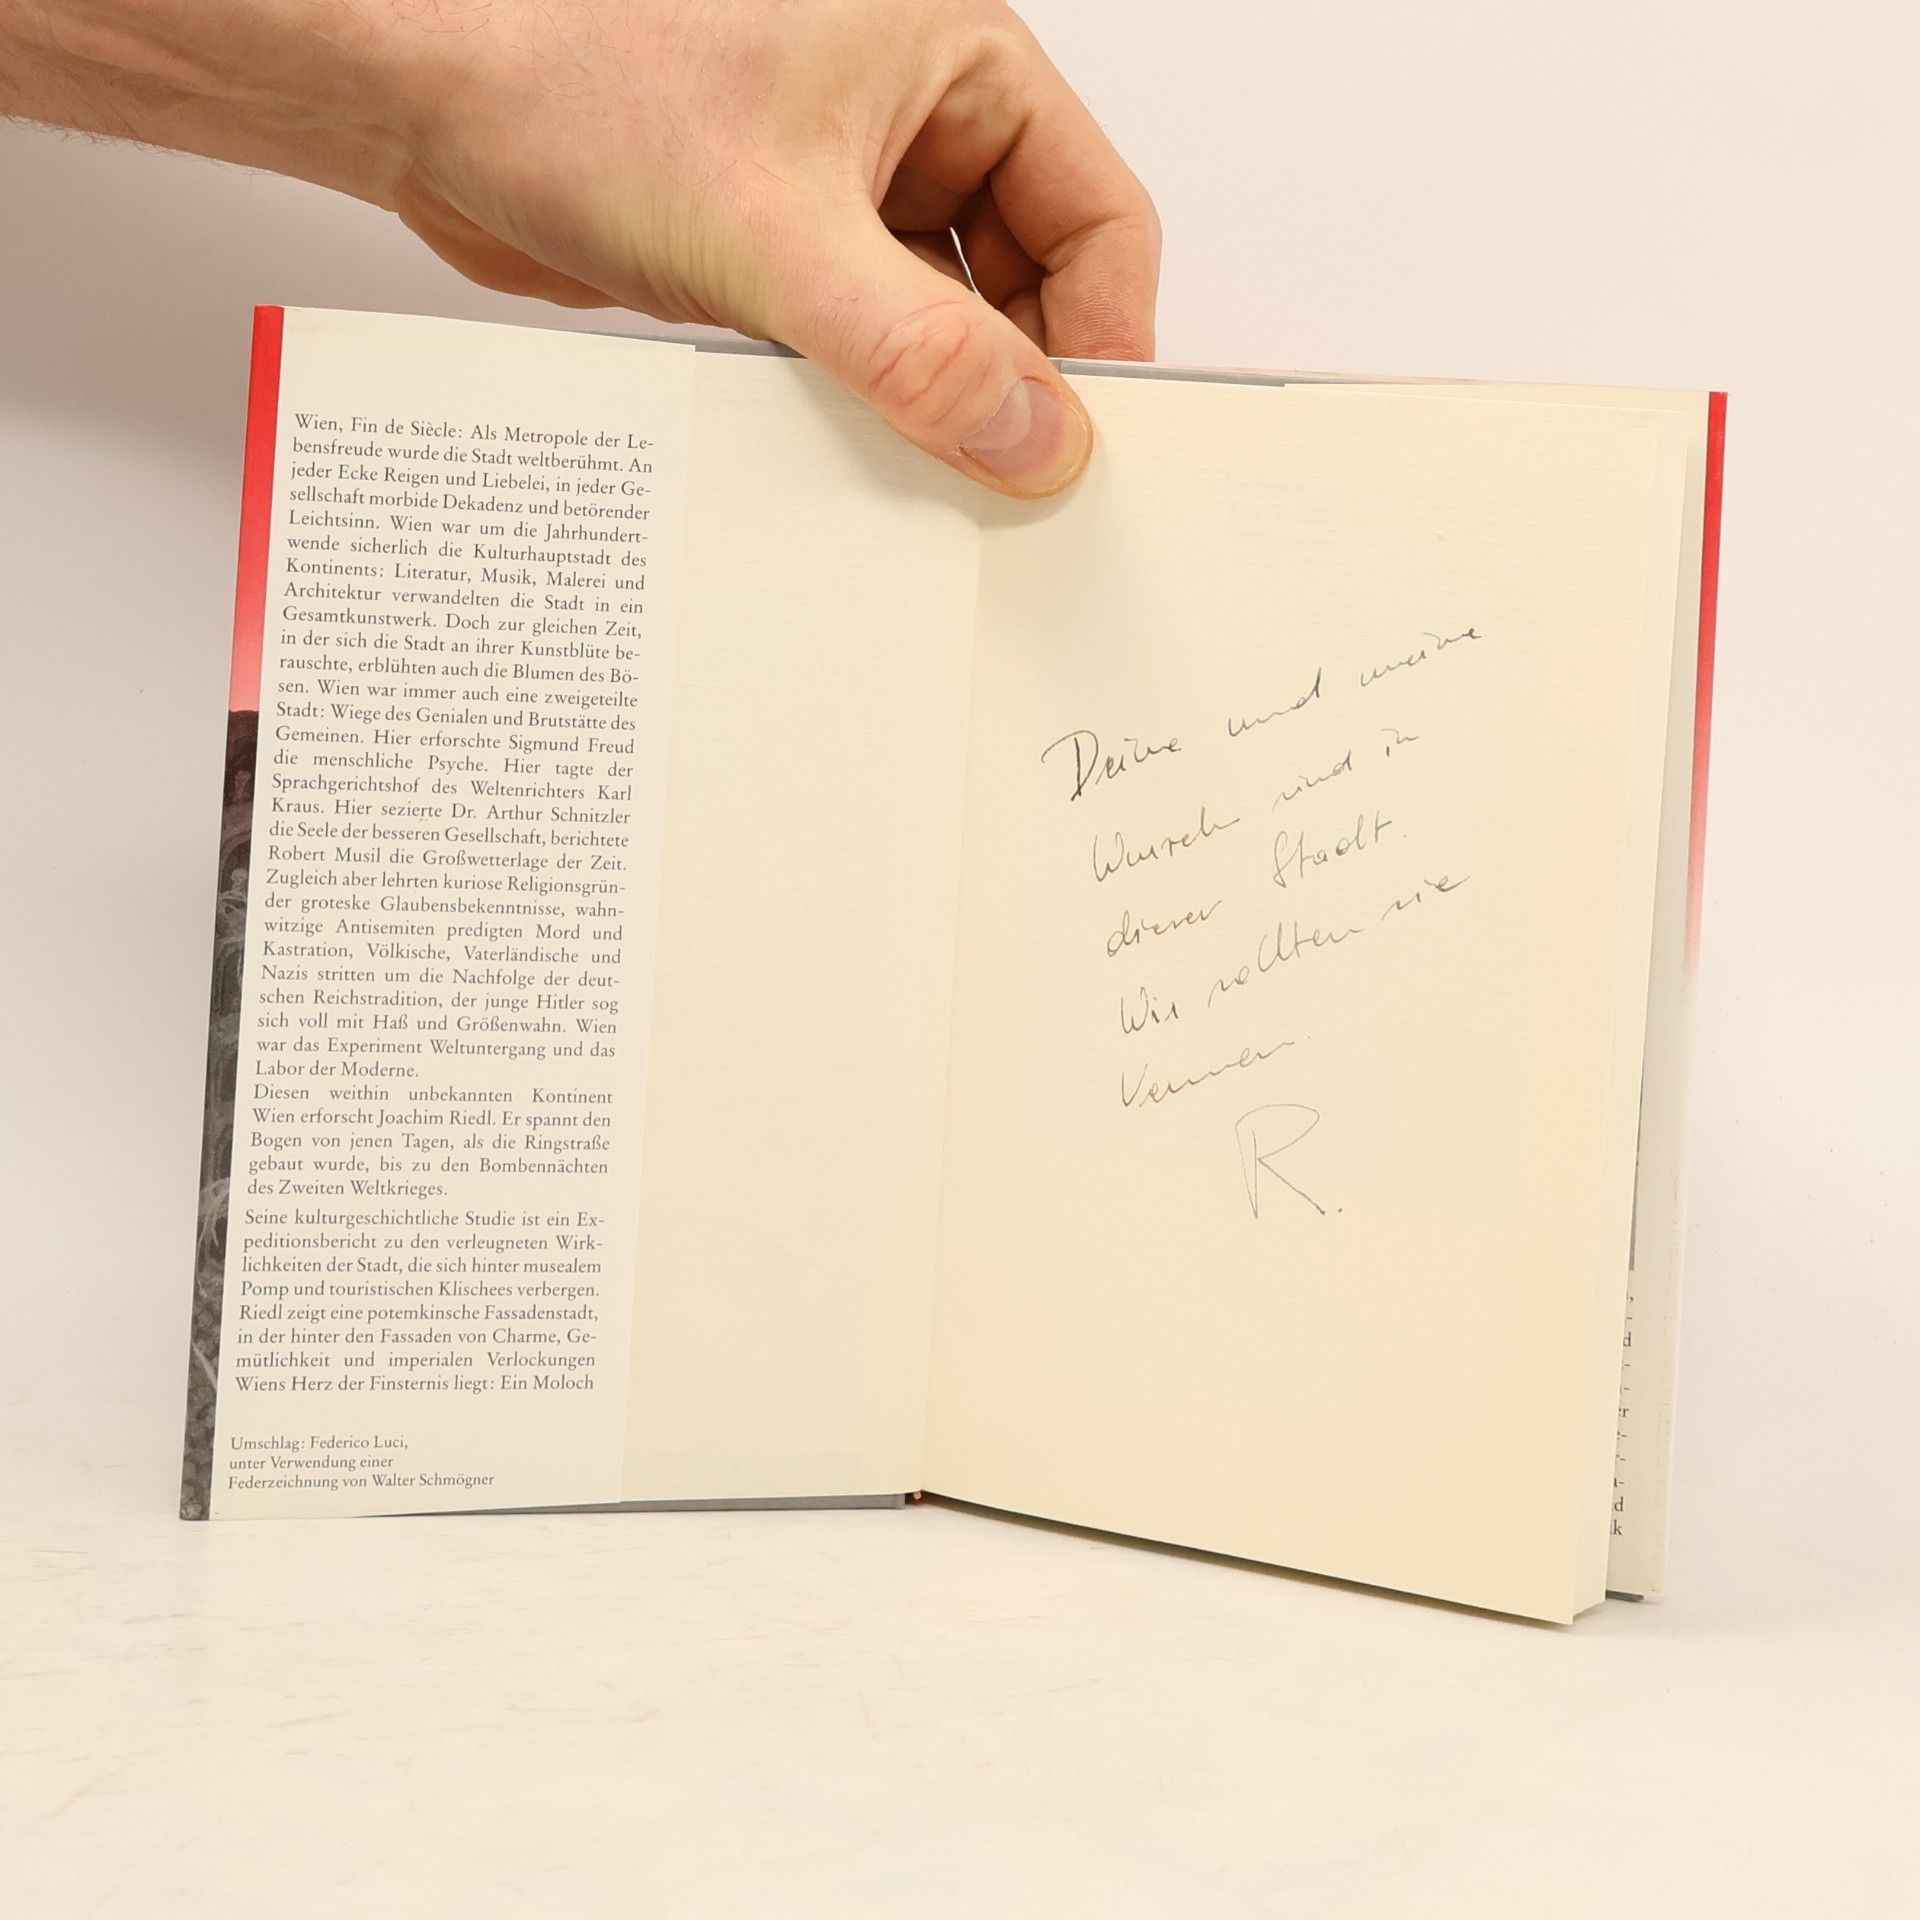 Wien, Fin de Siècle: Als Metropole der Le-
bensfreude wurde die Stadt weltberühmt. An
jeder Ecke Reigen und Liebelei, in jeder Ge-
sellschaft morbide Dekadenz und betörender
Leichtsinn. Wien war um die Jahrhundert-
wende sicherlich die Kulturhauptstadt des
Kontinents: Literatur, Musik, Malerei und
Architektur verwandelten die Stadt in ein
Gesamtkunstwerk. Doch zur gleichen Zeit,
in der sich die Stadt an ihrer Kunstblüte be-
rauschte, erblühten auch die Blumen des Bö-
sen. Wien war immer auch eine zweigeteilte
Stadt: Wiege des Genialen und Brutstätte des
Gemeinen. Hier erforschte Sigmund Freud
die menschliche Psyche. Hier tagte der
Sprachgerichtshof des Weltenrichters Karl
Kraus. Hier sezierte Dr. Arthur Schnitzler
die Seele der besseren Gesellschaft, berichtete
Robert Musil die Großwetterlage der Zeit.
Zugleich aber lehrten kuriose Religionsgrün-
der groteske Glaubensbekenntnisse, wahn-
witzige Antisemiten predigten Mord und
Kastration, Völkische, Vaterländische und
Nazis stritten um die Nachfolge der deut-
schen Reichstradition, der junge Hitler sog
sich voll mit Haß und Größenwahn. Wien
war das Experiment Weltuntergang und das
Labor der Moderne.
Diesen weithin unbekannten Kontinent
Wien erforscht Joachim Riedl. Er spannt den
Bogen von jenen Tagen, als die Ringstraße
gebaut wurde, bis zu den Bombennächten
des Zweiten Weltkrieges.
Seine kulturgeschichtliche Studie ist ein Ex-
peditionsbericht zu den verleugneten Wirk-
lichkeiten der Stadt, die sich hinter musealem
Pomp und touristischen Klischees verbergen.
Riedl zeigt eine potemkinsche Fassadenstadt,
in der hinter den Fassaden von Charme, Ge-
mütlichkeit und imperialen Verlockungen
Wiens Herz der Finsternis liegt: Ein Moloch
Umschlag: Federico Luci,
unter Verwendung einer
Federzeichnung von Walter Schmögner
Deine und meine
sind in
dieser Stadt.
Wir sollten sie
kennen.
R.